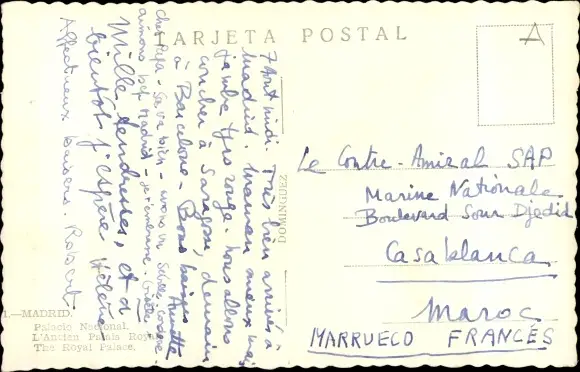 TARJETA POSTAL
A
7 Août midi. Très bien arrivés à
Madrid. Maman mieux mais
jambe tjrs rouge. Nous allons
coucher à Saragosse, demain
à Barcelone - Bons baisers
Annette
Cher Papa - Ça va bien - avons vu Séville, Cordoue.
aimons bcp Madrid - je t'embrasse. Gisèle
Mille tendresses, et à
bientôt j'espère Hélène
Affectueux baisers. Robert
DOMINGUEZ
Le Contre-Amiral SAP
Marine Nationale
Boulevard Sour Djedid
Casablanca
Maroc
MARRUECO FRANCÉS
1.—MADRID.
Palacio Nacional.
L'Ancien Palais Royal
The Royal Palace.